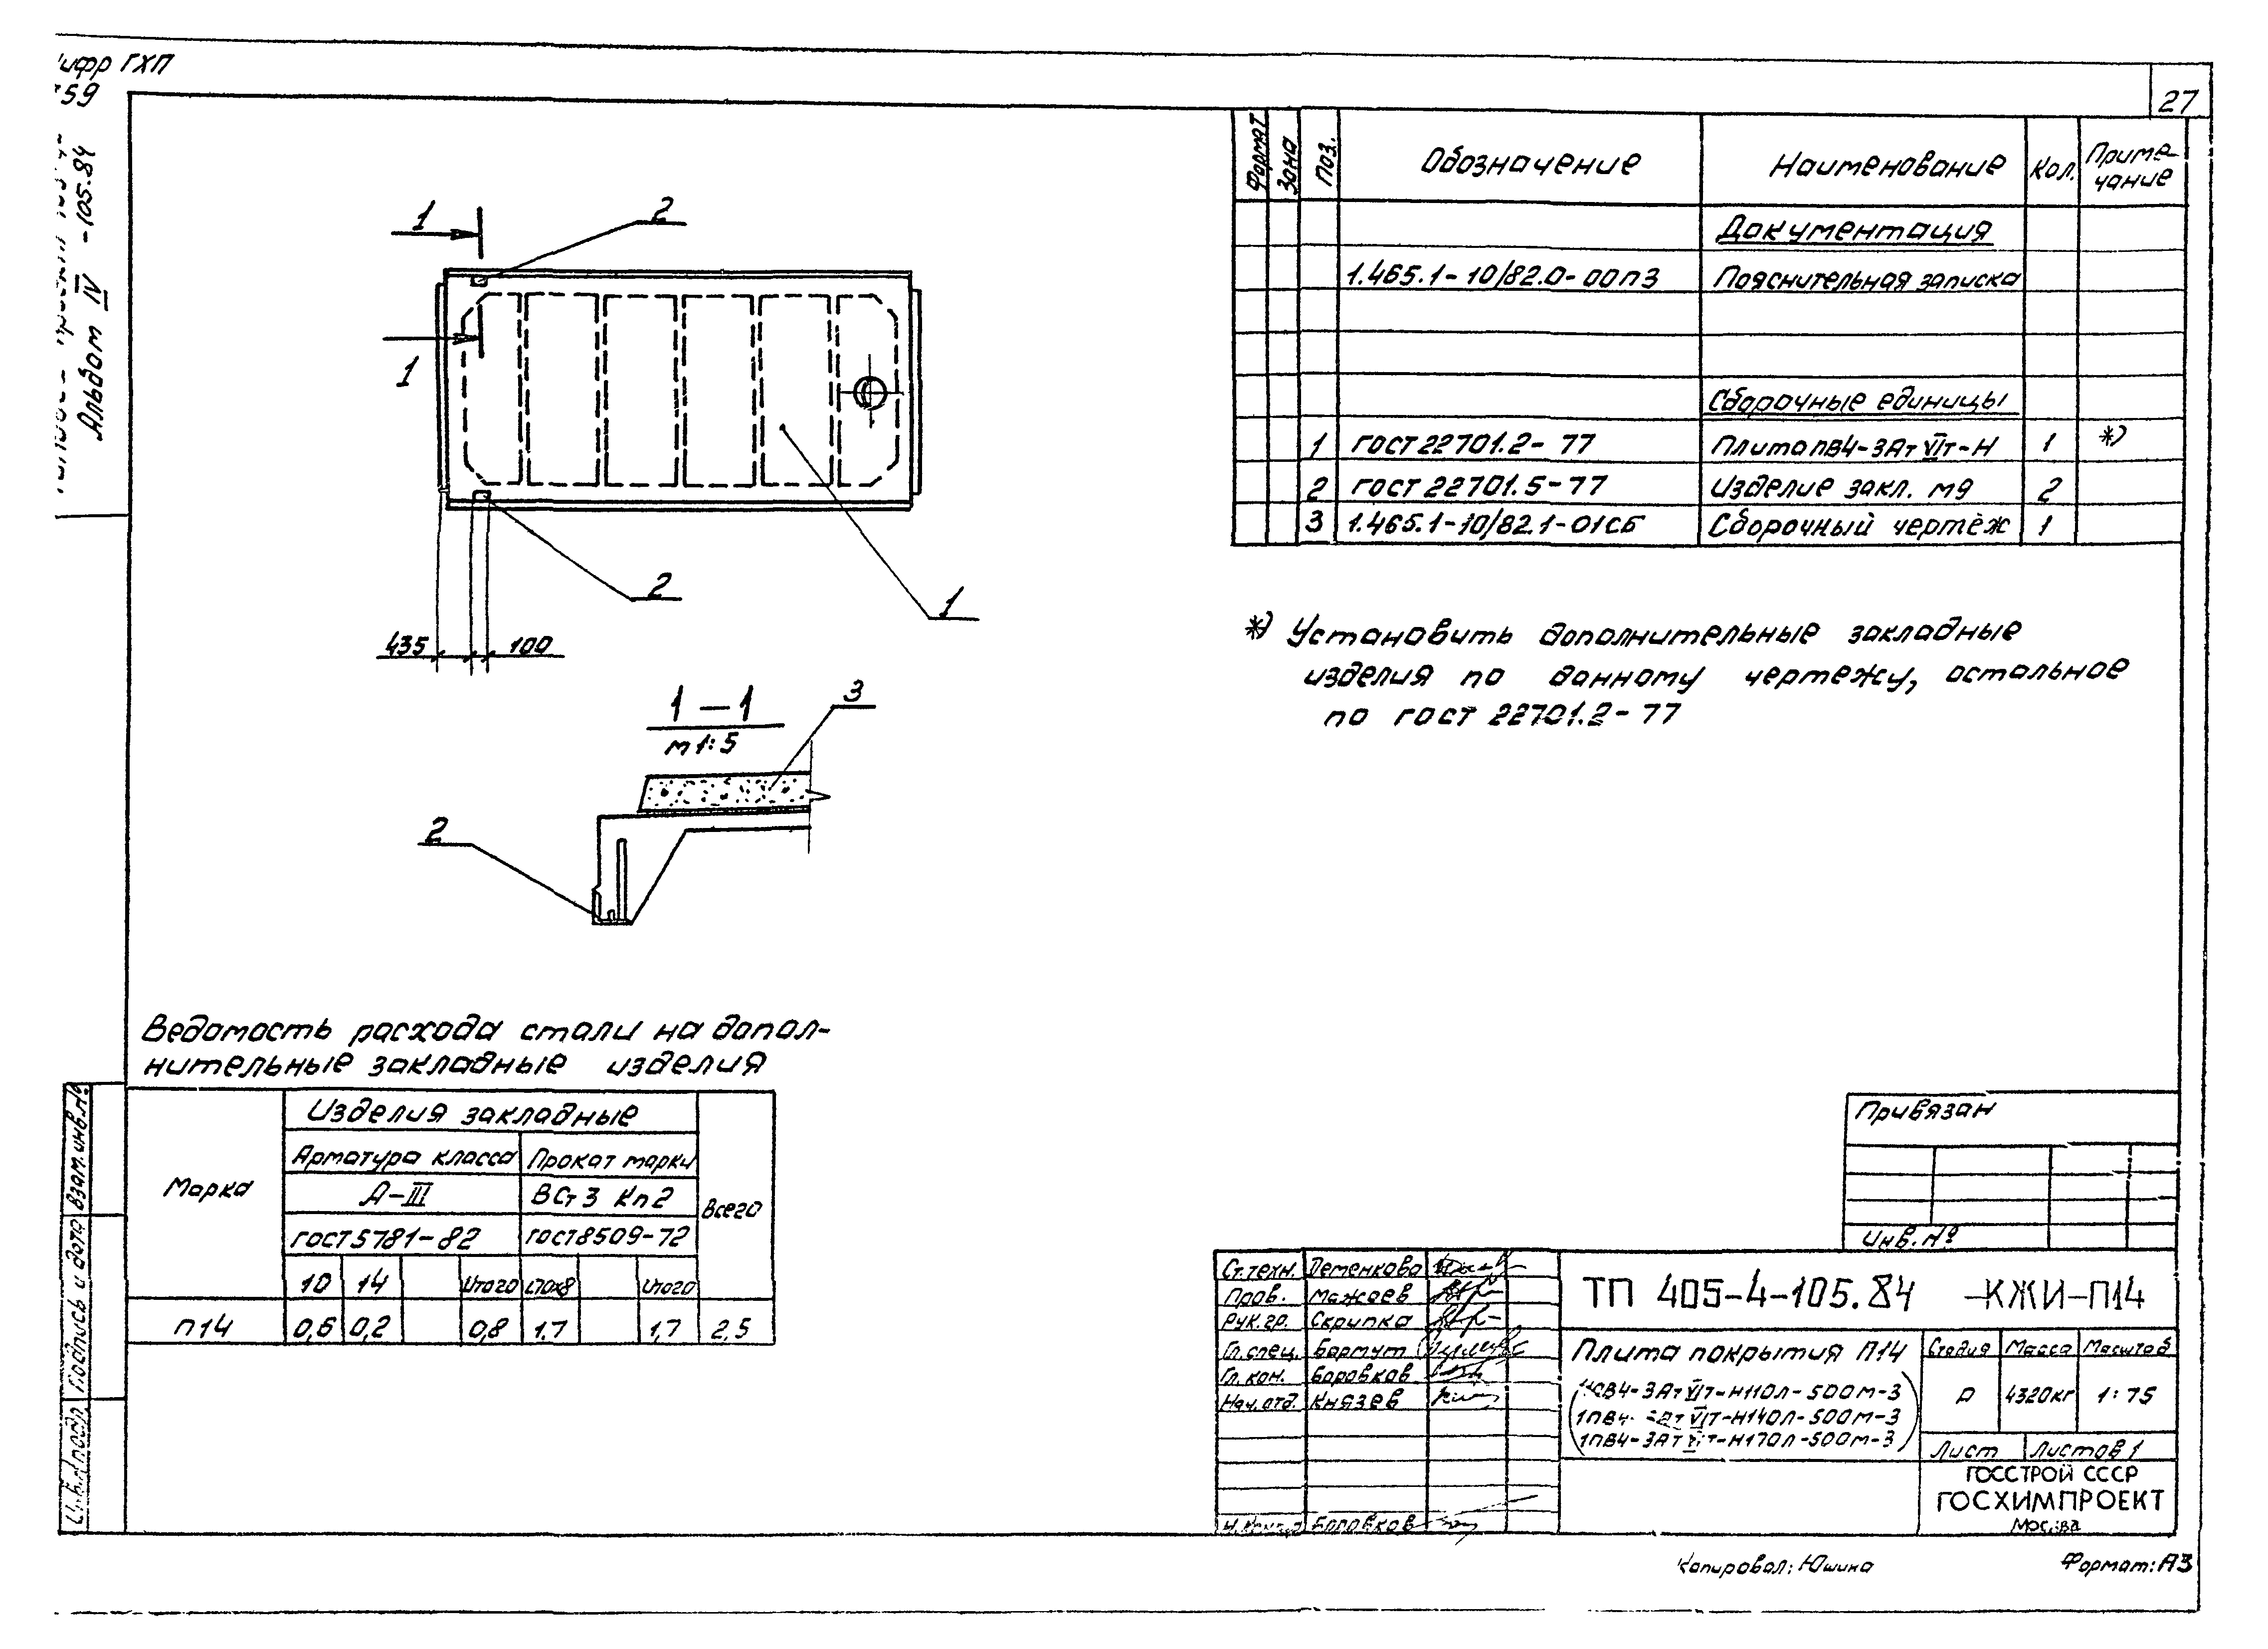 ифр ГХП
59
27
Альбом IV -105.84
Формат Зона Поз. Обозначение Наименование Кол. Приме-
чание
Документация
1.465.1-10/82.0-00ПЗ Пояснительная записка
Сборочные единицы
1 ГОСТ 22701.2-77 Плита ПВ4-3АтVIт-Н 1 *)
2 ГОСТ 22701.5-77 Изделие закл. М9 2
3 1.465.1-10/82.1-01СБ Сборочный чертёж 1
*) Установить дополнительные закладные
изделия по данному чертежу, остальное
по ГОСТ 22701.2-77
1
2
1
2
1
435 100
1-1
М1:5
3
2
Ведомость расхода стали на допол-
нительные закладные изделия
Марка Изделия закладные Всего
Арматура класса Прокат марки
А-III ВСт3 Кп2
ГОСТ 5781-82 ГОСТ 8509-72
10 14 Итого L70х8 Итого
П14 0,6 0,2 0,8 1.7 1,7 2,5
Взам. инв. №
Подпись и дата
подл.
Привязан
Инв. №
Ст. техн. Деменкова
Пров. Мажаев
Рук. гр. Скрипка
Гл. спец. Бармут
Гл. кон. Боровков
Нач. отд. Князев
Боровков
ТП 405-4-105.84 -КЖИ-П14
Плита покрытия П14
ПВ4-3АтVIт-Н110Л-500М-3
1ПВ4- АтVIт-Н140Л-500М-3
1ПВ4-3Ат т-Н170Л-500М-3
Стадия Масса Масштаб
Р 4320кг 1:75
Лист Листов 1
ГОССТРОЙ СССР
ГОСХИМПРОЕКТ
Москва
Копировал: Юшина Формат: А3